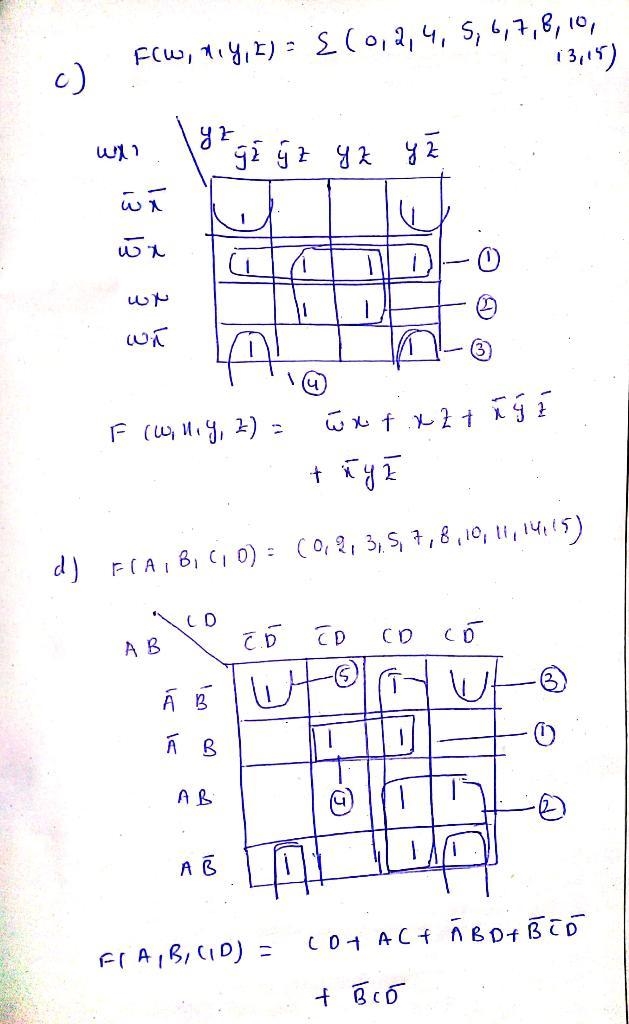 c) F(w, x, y, z) = Σ (0, 2, 4, 5, 6, 7, 8, 10,
13, 15)
yz
wx ȳz̄ ȳz yz yz̄
w̄x̄ 1 1
w̄x 1 1 1 1 ①
wx 1 1 ②
wx̄ 1 1 ③
④
F (w, x, y, z) = w̄x + xz + x̄ȳz̄
+ x̄yz̄
d) F(A, B, C, D) = (0, 2, 3, 5, 7, 8, 10, 11, 14, 15)
CD
AB C̄D̄ C̄D CD CD̄
ĀB̄ 1 ⑤ 1 1 ③
ĀB 1 1 ①
AB ④ 1 1 ②
AB̄ 1 1 1
F(A, B, C, D) = CD + AC + ĀBD + B̄C̄D̄
+ B̄CD̄